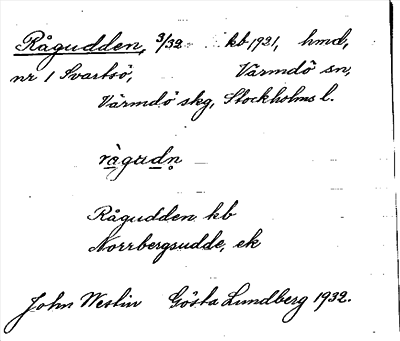 Rågudden, 3/32 kb 1921, hmd,
nr 1 Svartsö, Värmdö sn,
Värmdö skg, Stockholms l.
ràgudn̥
Rågudden kb
Norrbergsudde, ek
John Westin Gösta Lundberg 1932.